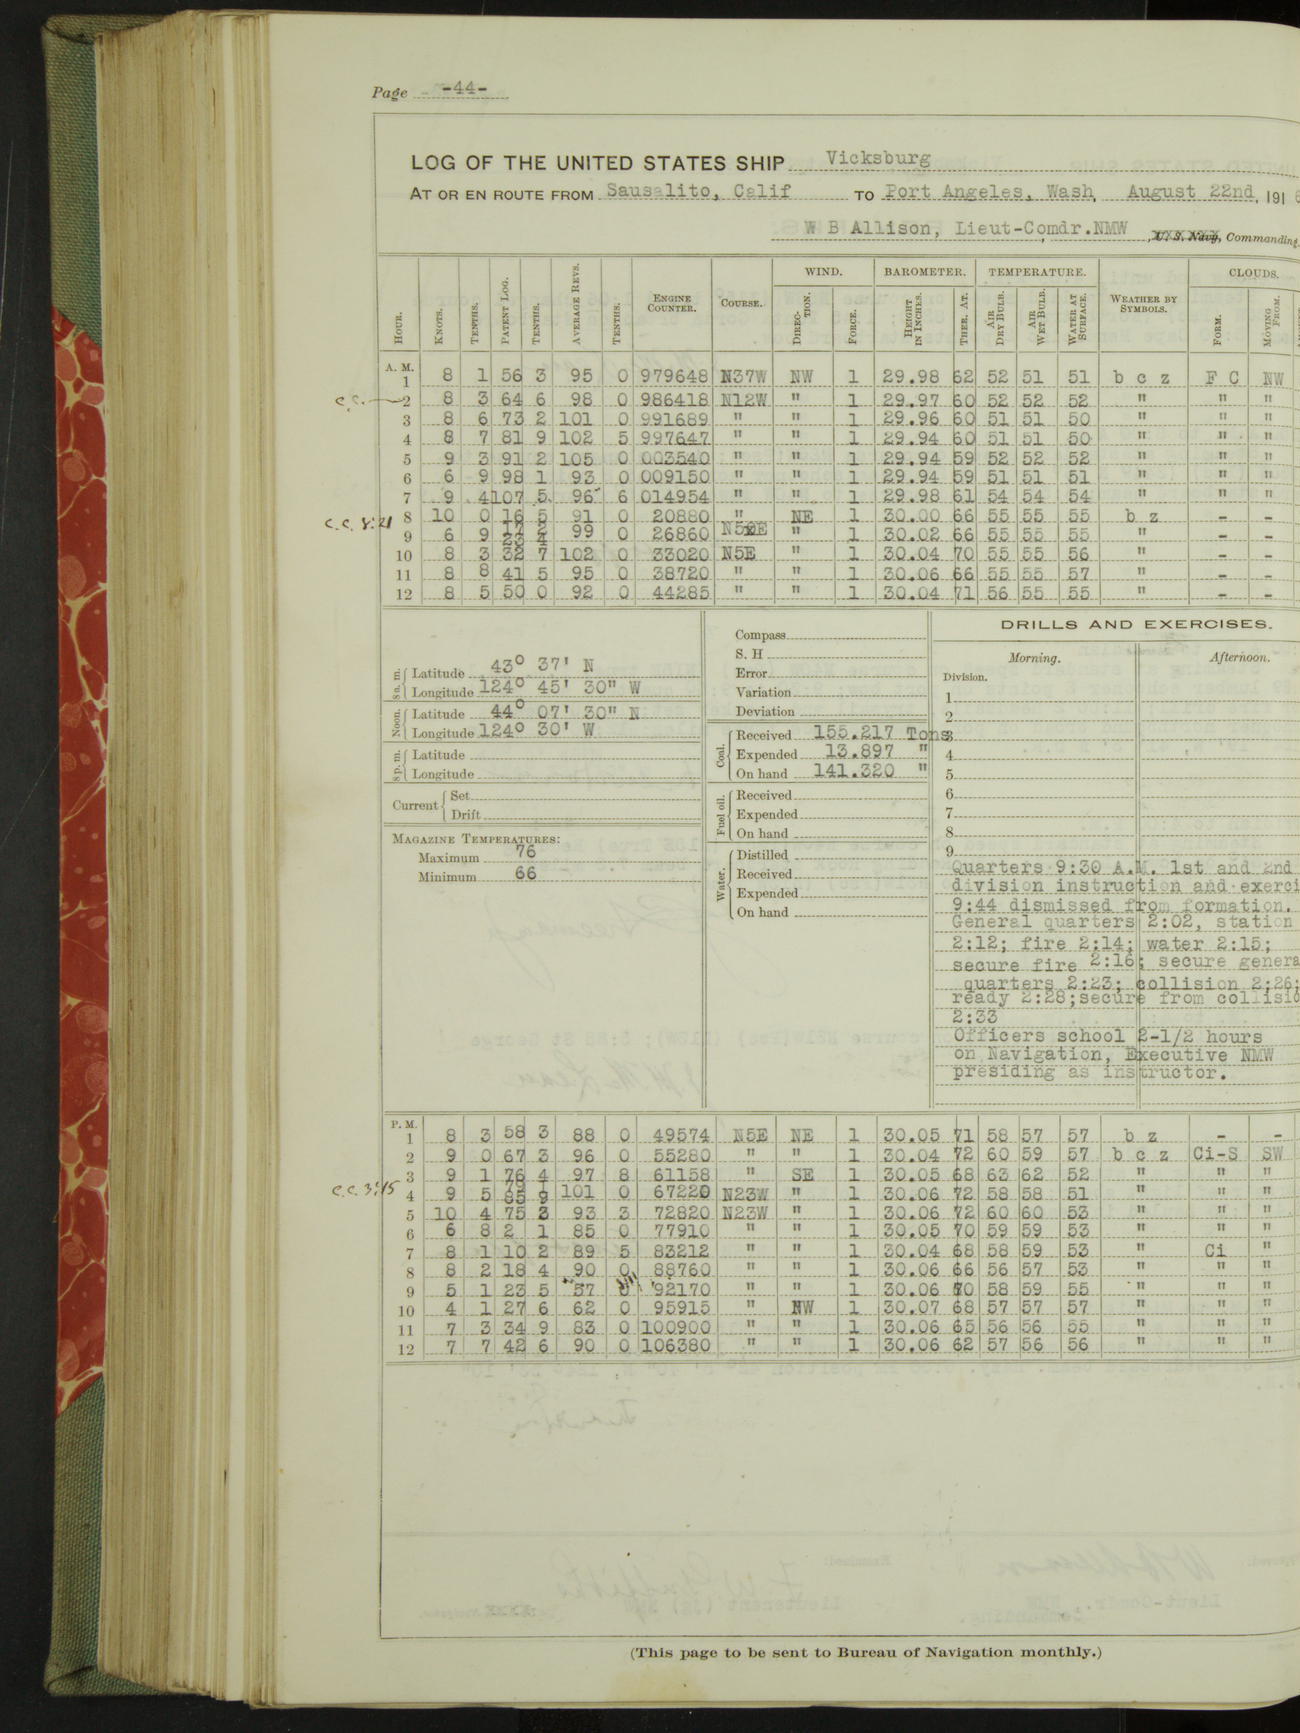 Page -44-
LOG OF THE UNITED STATES SHIP Vicksburg
AT OR EN ROUTE FROM Sausalito, Calif TO Port Angeles, Wash, August 22nd, 191
W B Allison, Lieut-Comdr.NMW , U. S. Navy, Commanding.
WIND. BAROMETER. TEMPERATURE. CLOUDS.
HOUR. KNOTS. TENTHS. PATENT LOG. TENTHS. AVERAGE REVS. TENTHS. ENGINE COUNTER. COURSE. DIRECTION. FORCE. HEIGHT IN INCHES. THER. AT. AIR DRY BULB. AIR WET BULB. WATER AT SURFACE. WEATHER BY SYMBOLS. FORM. MOVING FROM.
A. M.
1 8 1 56 3 95 0 979648 N37W NW 1 29.98 62 52 51 51 b c z F C NW
c.c. 2 8 3 64 6 98 0 986418 N12W " 1 29.97 60 52 52 52 " " "
3 8 6 73 2 101 0 991689 " " 1 29.96 60 51 51 50 " " "
4 8 7 81 9 102 5 997647 " " 1 29.94 60 51 51 50 " " "
5 9 3 91 2 105 0 003540 " " 1 29.94 59 52 52 52 " " "
6 6 9 98 1 93 0 009150 " " 1 29.94 59 51 51 51 " " "
7 9 4 107 5 96 6 014954 " " 1 29.98 61 54 54 54 " " "
8 10 0 16 5 91 0 20880 " NE 1 30.00 66 55 55 55 b z - -
c.c. 8:21
17 2
9 6 9 23 4 99 0 26860 " 1 30.02 66 55 55 55 " - -
10 8 3 32 7 102 0 33020 N5E " 1 30.04 70 55 55 56 " - -
11 8 8 41 5 95 0 38720 " " 1 30.06 66 55 55 57 " - -
12 8 5 50 0 92 0 44285 " " 1 30.04 71 56 55 55 " - -
8 a. m. Latitude 43° 37' N
Longitude 124° 45' 30" W
Noon. Latitude 44° 07' 30" N
Longitude 124° 30' W
8 p. m. Latitude
Longitude
Current Set
Drift
MAGAZINE TEMPERATURES:
Maximum 76
Minimum 66
Compass
S. H
Error
Variation
Deviation
Coal. Received 155.217 Tons
Expended 13.897 "
On hand 141.320 "
Fuel oil. Received
Expended
On hand
Water. Distilled
Received
Expended
On hand
DRILLS AND EXERCISES.
Morning. Afternoon.
Division.
1
2
3
4
5
6
7
8
9
Quarters 9:30 A.M. 1st and 2nd
division instruction and exerci
9:44 dismissed from formation.
General quarters 2:02, station
2:12; fire 2:14; water 2:15;
secure fire 2:16; secure genera
quarters 2:23; collision 2:26;
ready 2:28;secure from collisio
2:33
Officers school 2-1/2 hours
on Navigation, Executive NMW
presiding as instructor.
P. M.
1 8 3 58 3 88 0 49574 N5E NE 1 30.05 71 58 57 57 b z - -
2 9 0 67 3 96 0 55280 " " 1 30.04 72 60 59 57 b c z Ci-S SW
3 9 1 76 4 97 8 61158 " SE 1 30.05 68 63 62 52 " " "
c.c. 3:15
79 1
4 9 5 85 9 101 0 67220 N23W " 1 30.06 72 58 58 51 " " "
5 10 4 75 3 93 3 72820 N23W " 1 30.06 72 60 60 53 " " "
6 6 8 2 1 85 0 77910 " " 1 30.05 70 59 59 53 " " "
7 8 1 10 2 89 5 83212 " " 1 30.04 68 58 59 53 " Ci "
8 8 2 18 4 90 0 88760 " " 1 30.06 66 56 57 53 " " "
9 5 1 23 5 57 0 92170 " " 1 30.06 70 58 59 55 " " "
10 4 1 27 6 62 0 95915 " NW 1 30.07 68 57 57 57 " " "
11 7 3 34 9 83 0 100900 " " 1 30.06 65 56 56 55 " " "
12 7 7 42 6 90 0 106380 " " 1 30.06 62 57 56 56 " " "
(This page to be sent to Bureau of Navigation monthly.)